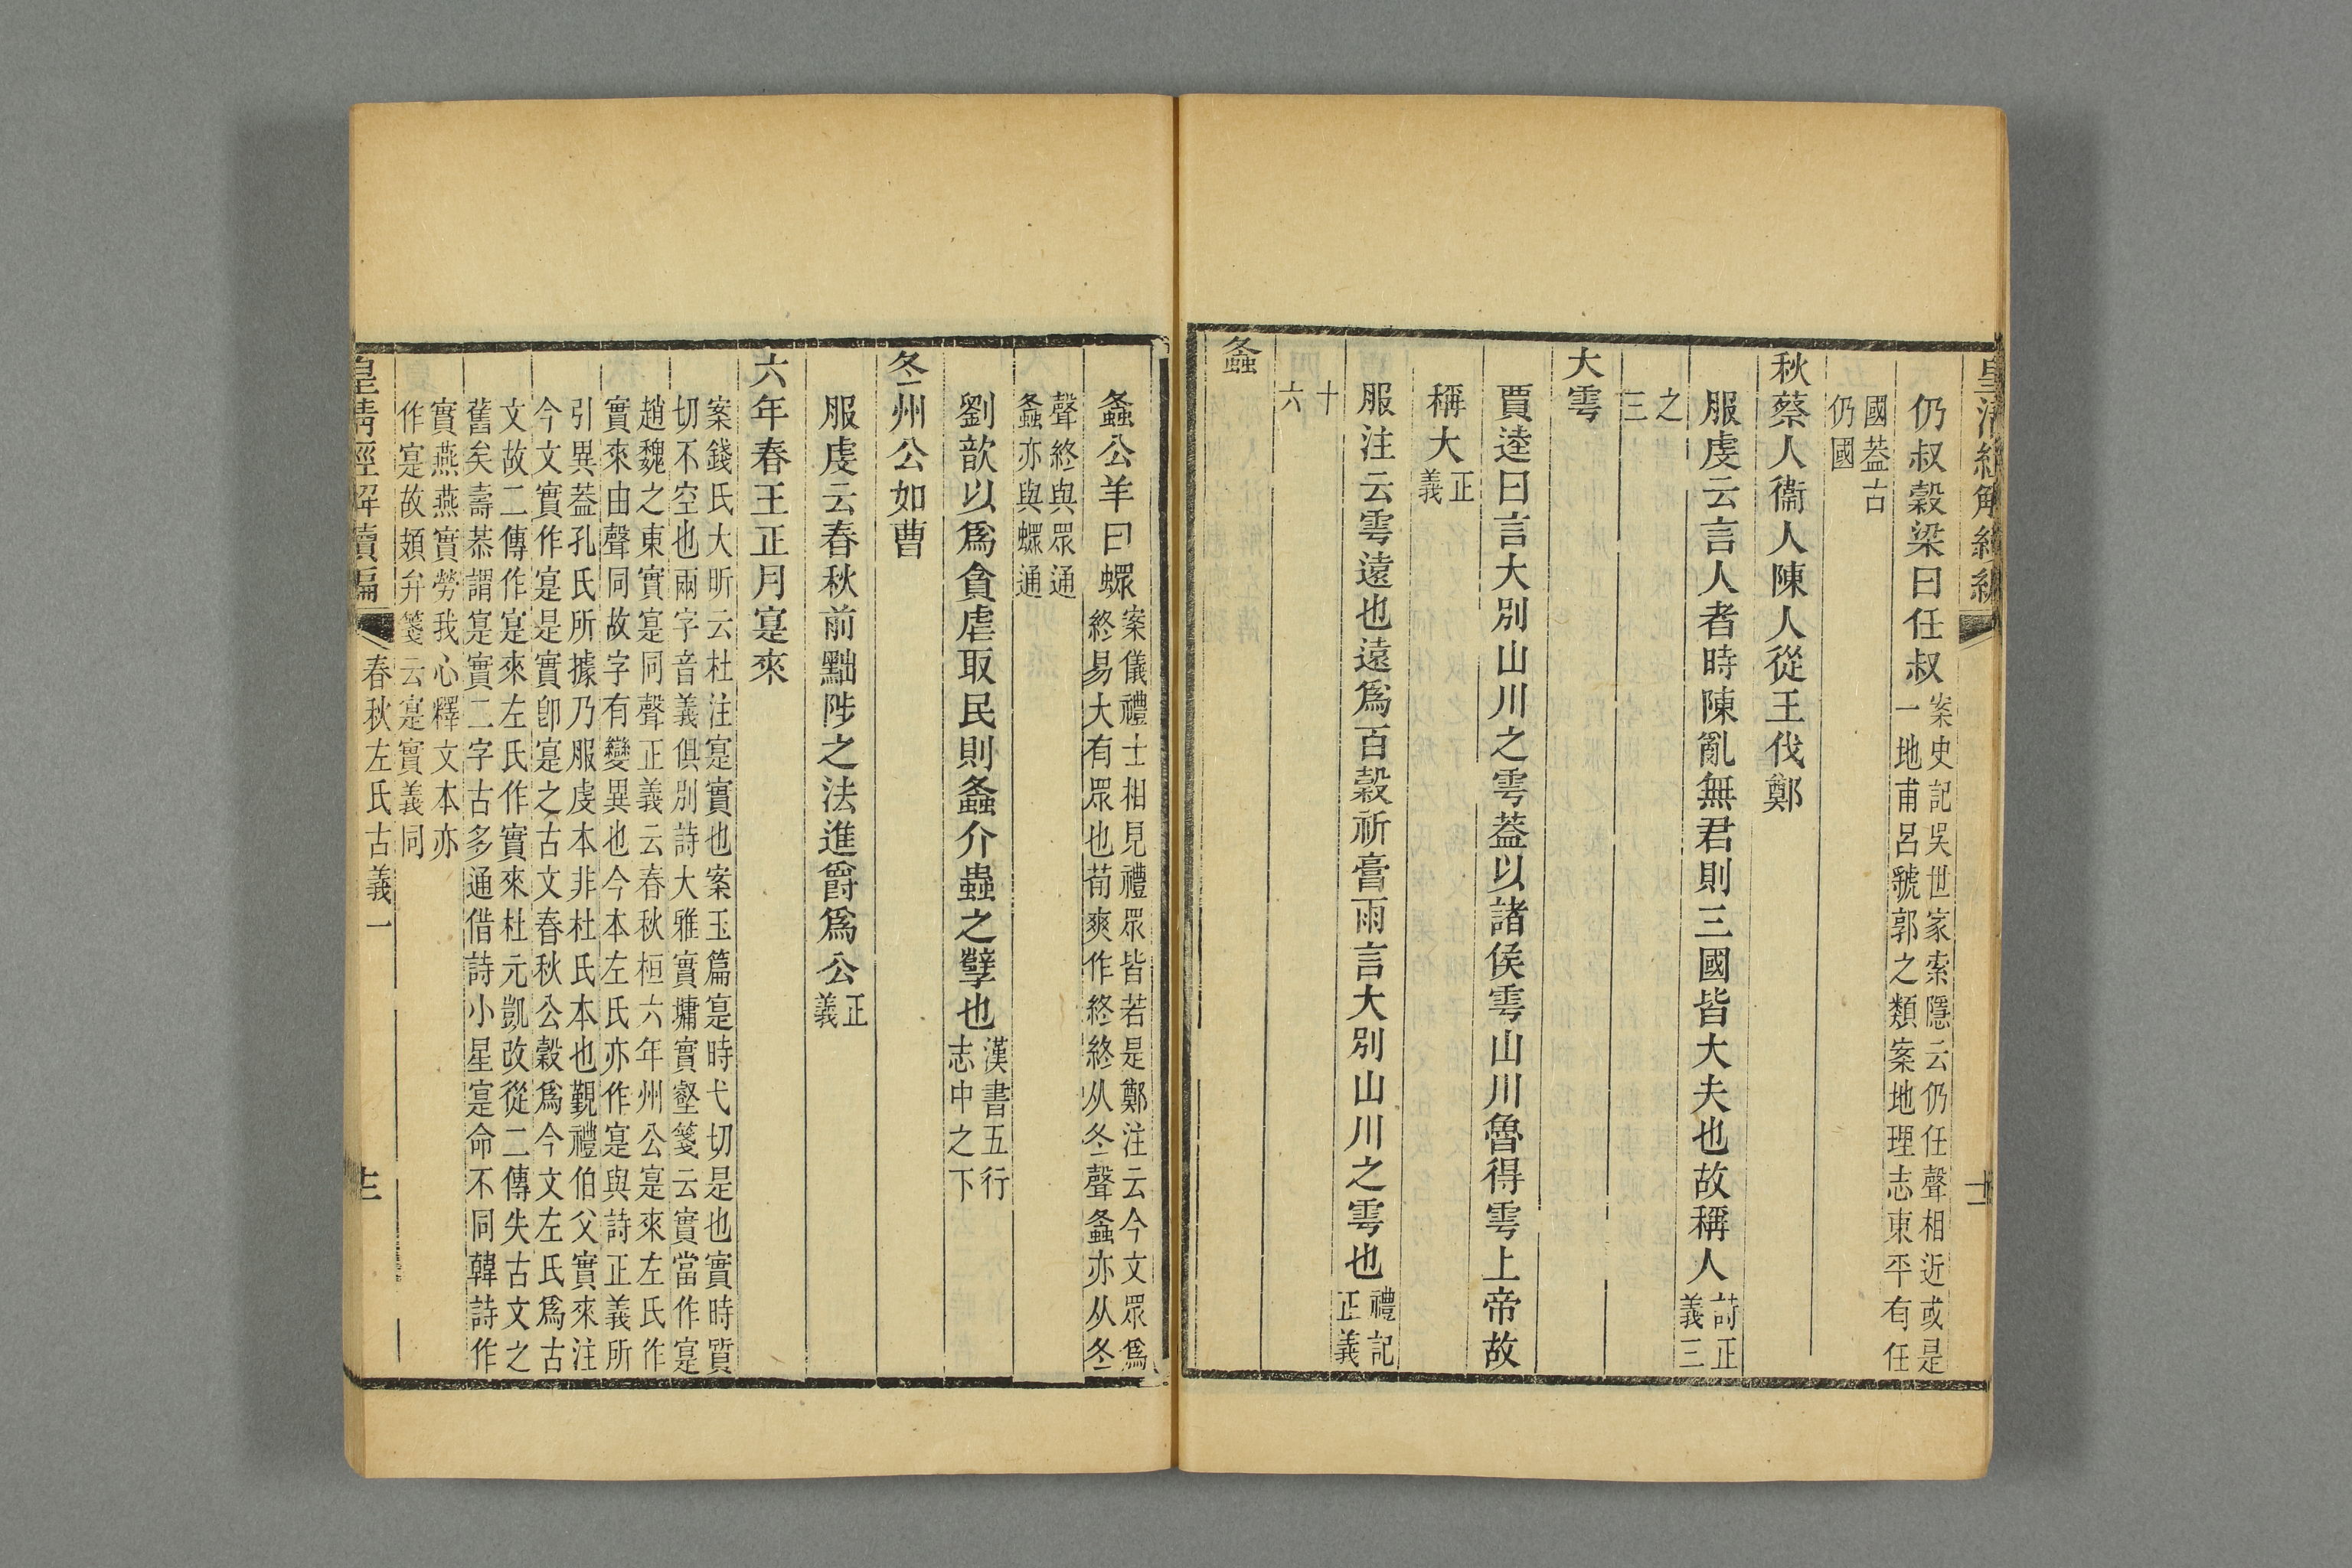 仍叔穀梁曰任叔案史記吳世家索隱云仍任聲相近或是
一地甫呂虢郭之類案地理志東平有任
國葢古
仍國
秋蔡人衞人陳人從王伐鄭
服虔云言人者時陳亂無君則三國皆大夫也故稱人詩正
義三
之
三
大雩
賈逵曰言大別山川之雩葢以諸侯雩山川魯得雩上帝故
稱大正
義
服注云雩遠也遠爲百穀祈膏雨言大別山川之雩也禮記
正義
十
六
螽
螽公羊曰𧑄案儀禮士相見禮眾皆若是鄭注云今文眾爲
終易大有眾也荀爽作終終从冬聲螽亦从冬
聲終與眾通
螽亦與𧑄通
劉歆以爲貪虐取民則螽介蟲之孽也漢書五行
志中之下
冬州公如曹
服虔云春秋前黜陟之法進爵爲公正
義
六年春王正月寔來
案錢氏大昕云杜注寔實也案玉篇寔時弋切是也實時質
切不空也兩字音義俱別詩大雅實墉實壑箋云實當作寔
趙魏之東實寔同聲正義云春秋桓六年州公寔來左氏作
實來由聲同故字有變異也今本左氏亦作寔與詩正義所
引異葢孔氏所據乃服虔本非杜氏本也覲禮伯父實來注
今文實作寔是實卽寔之古文春秋公穀爲今文左氏爲古
文故二傳作寔來左氏作實來杜元凱改從二傳失古文之
舊矣壽恭謂寔實二字古多通借詩小星寔命不同韓詩作
實燕燕實勞我心釋文本亦
作寔故頍弁箋云寔實義同
皇清經解續編
春秋左氏古義一